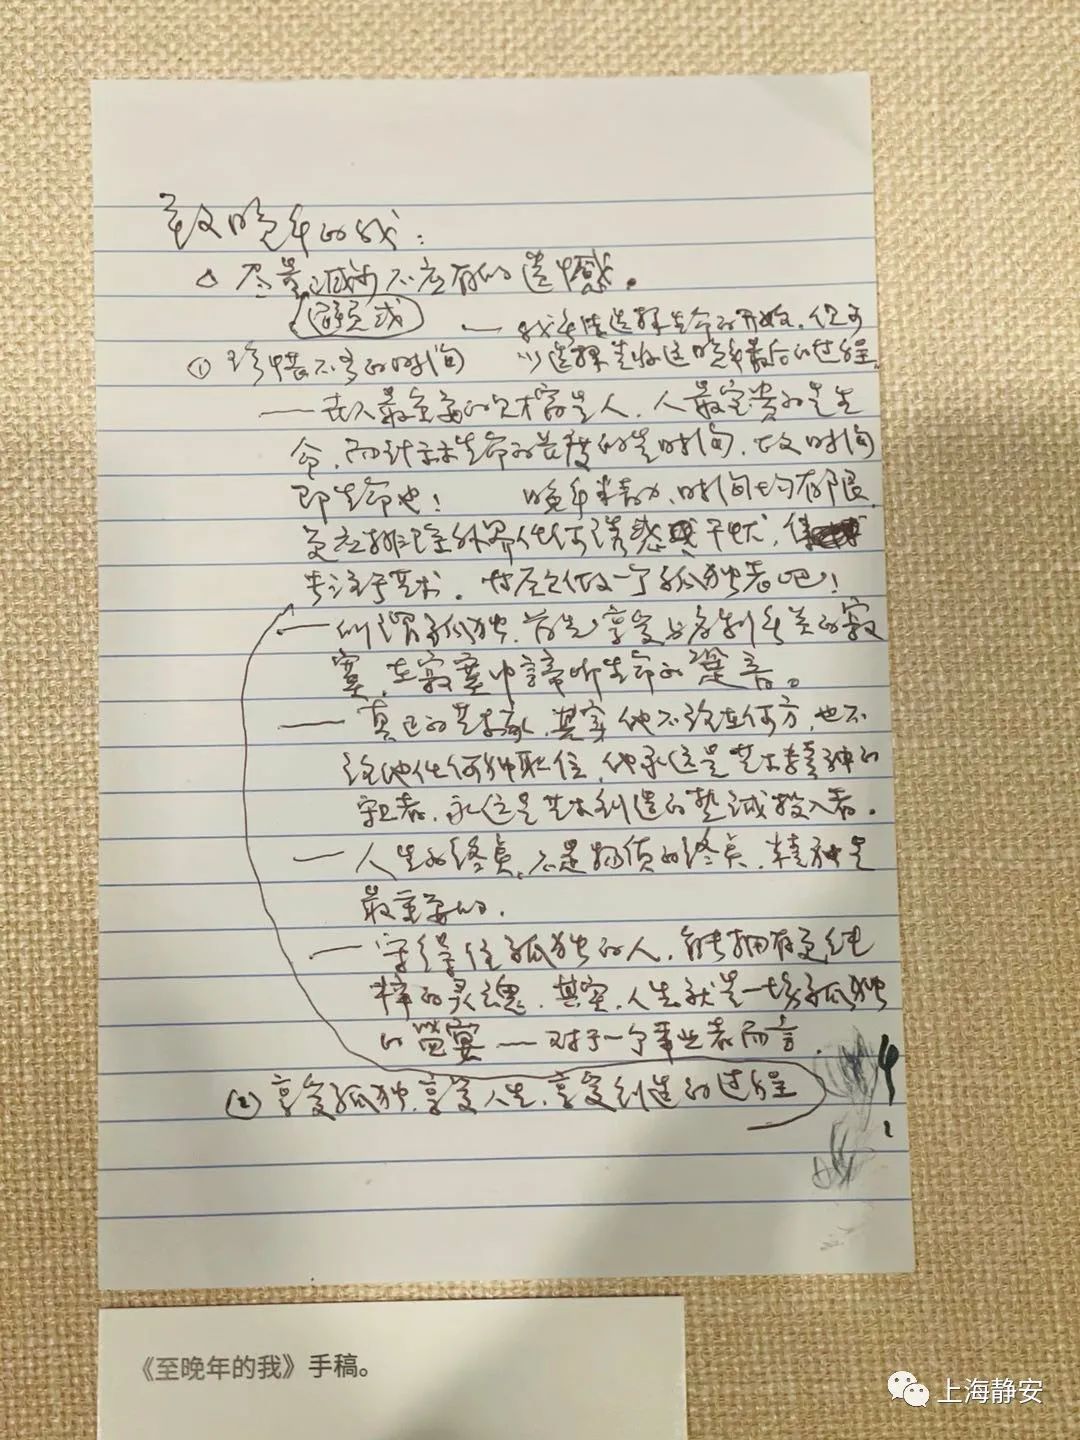 致晚年的我：
△ 尽量减少不应有的遗憾。
（避免或）
— 我无法选择生命的开始，但可
① 珍惜不多的时间
以选择先好这晚年最后的过程。
—— 世人最重要的财富是人，人最宝贵的是生
命，而计示生命的长度的是时间，故时间
即生命也！ 晚年精力、时间均有限，
更应排除外界任何诱惑或干扰，
专注于艺术。甘愿做一个孤独者吧！
— 所谓孤独，首先享受与名利无关的寂
寞，在寂寞中谛听生命的跫音。
—— 真正的艺术家，其实他不论在何方，也不
论他任何种职位，他永远是艺术精神的
守望者，永远是艺术创造的挚诚投入者。
— 人生的终点，不是物质的终点，精神是
最重要的。
— 守得住孤独的人，能拥有更纯
粹的灵魂，其实，人生就是一场孤独
的盛宴 — 对于一个事业者而言，
② 享受孤独，享受人生，享受创造的过程
《至晚年的我》手稿。
上海静安